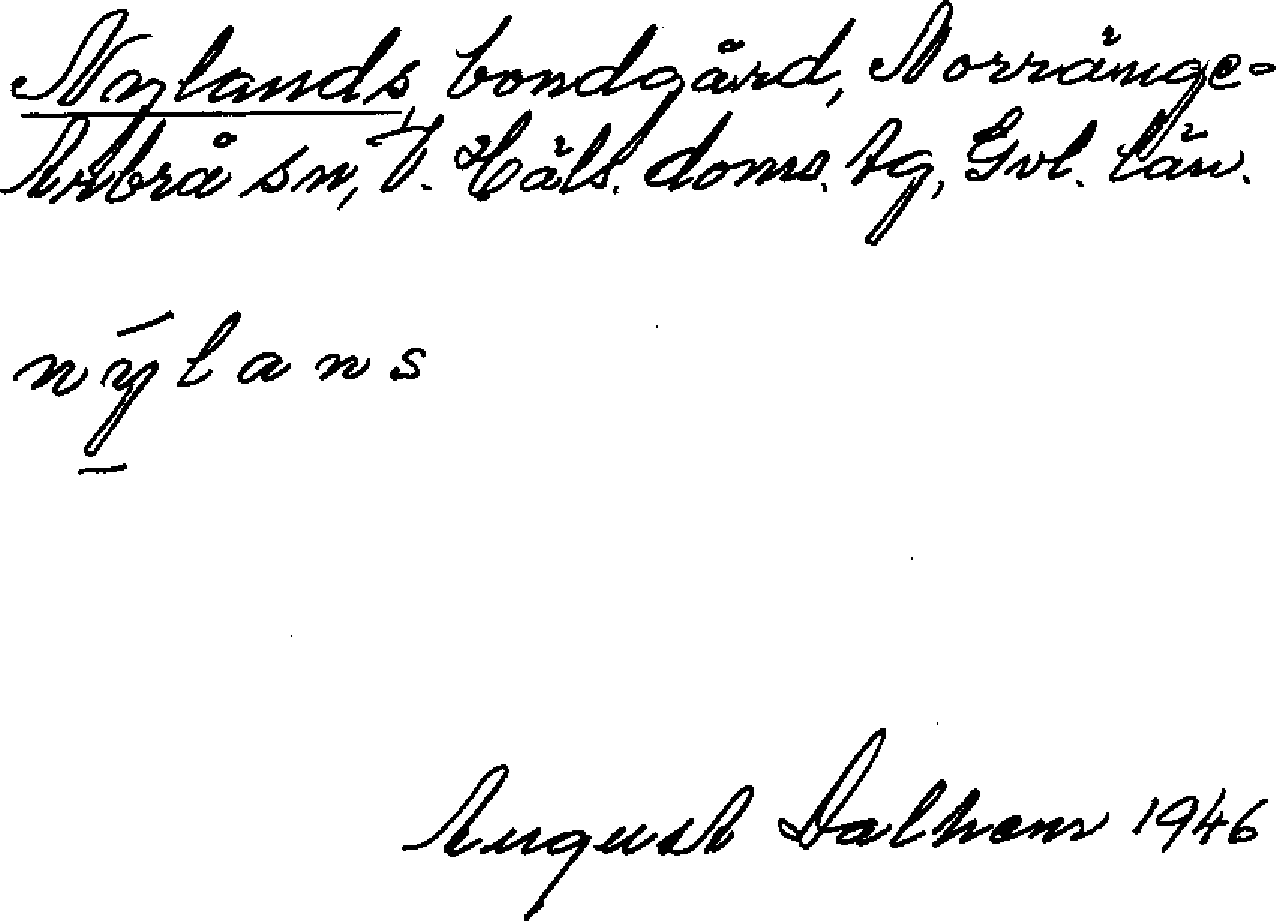 Nylands, bondgård, Norränge-
Arbrå sn, V. Häls. doms. tg, Gvl. län.
nȳ̱lans
August Dalhem 1946